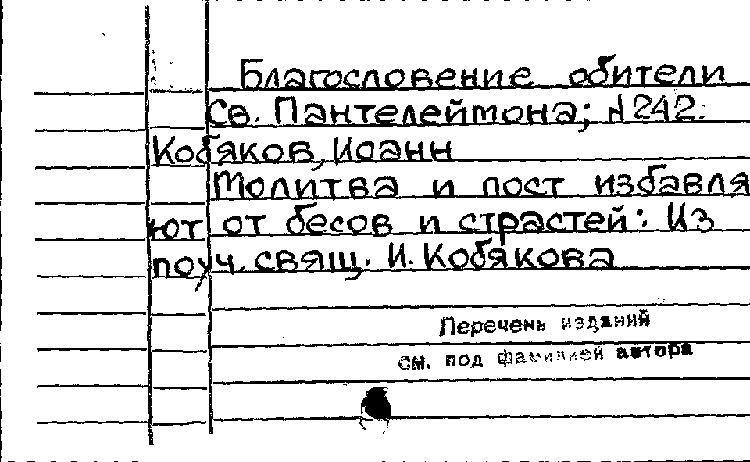 Благословение обители
Св. Пантелеймона; №242.
Кобяков, Иоанн
Молитва и пост избавля
ют от бесов и страстей: Из
поуч. свящ. И. Кобякова
Перечень изданий
см. под фамилией автора